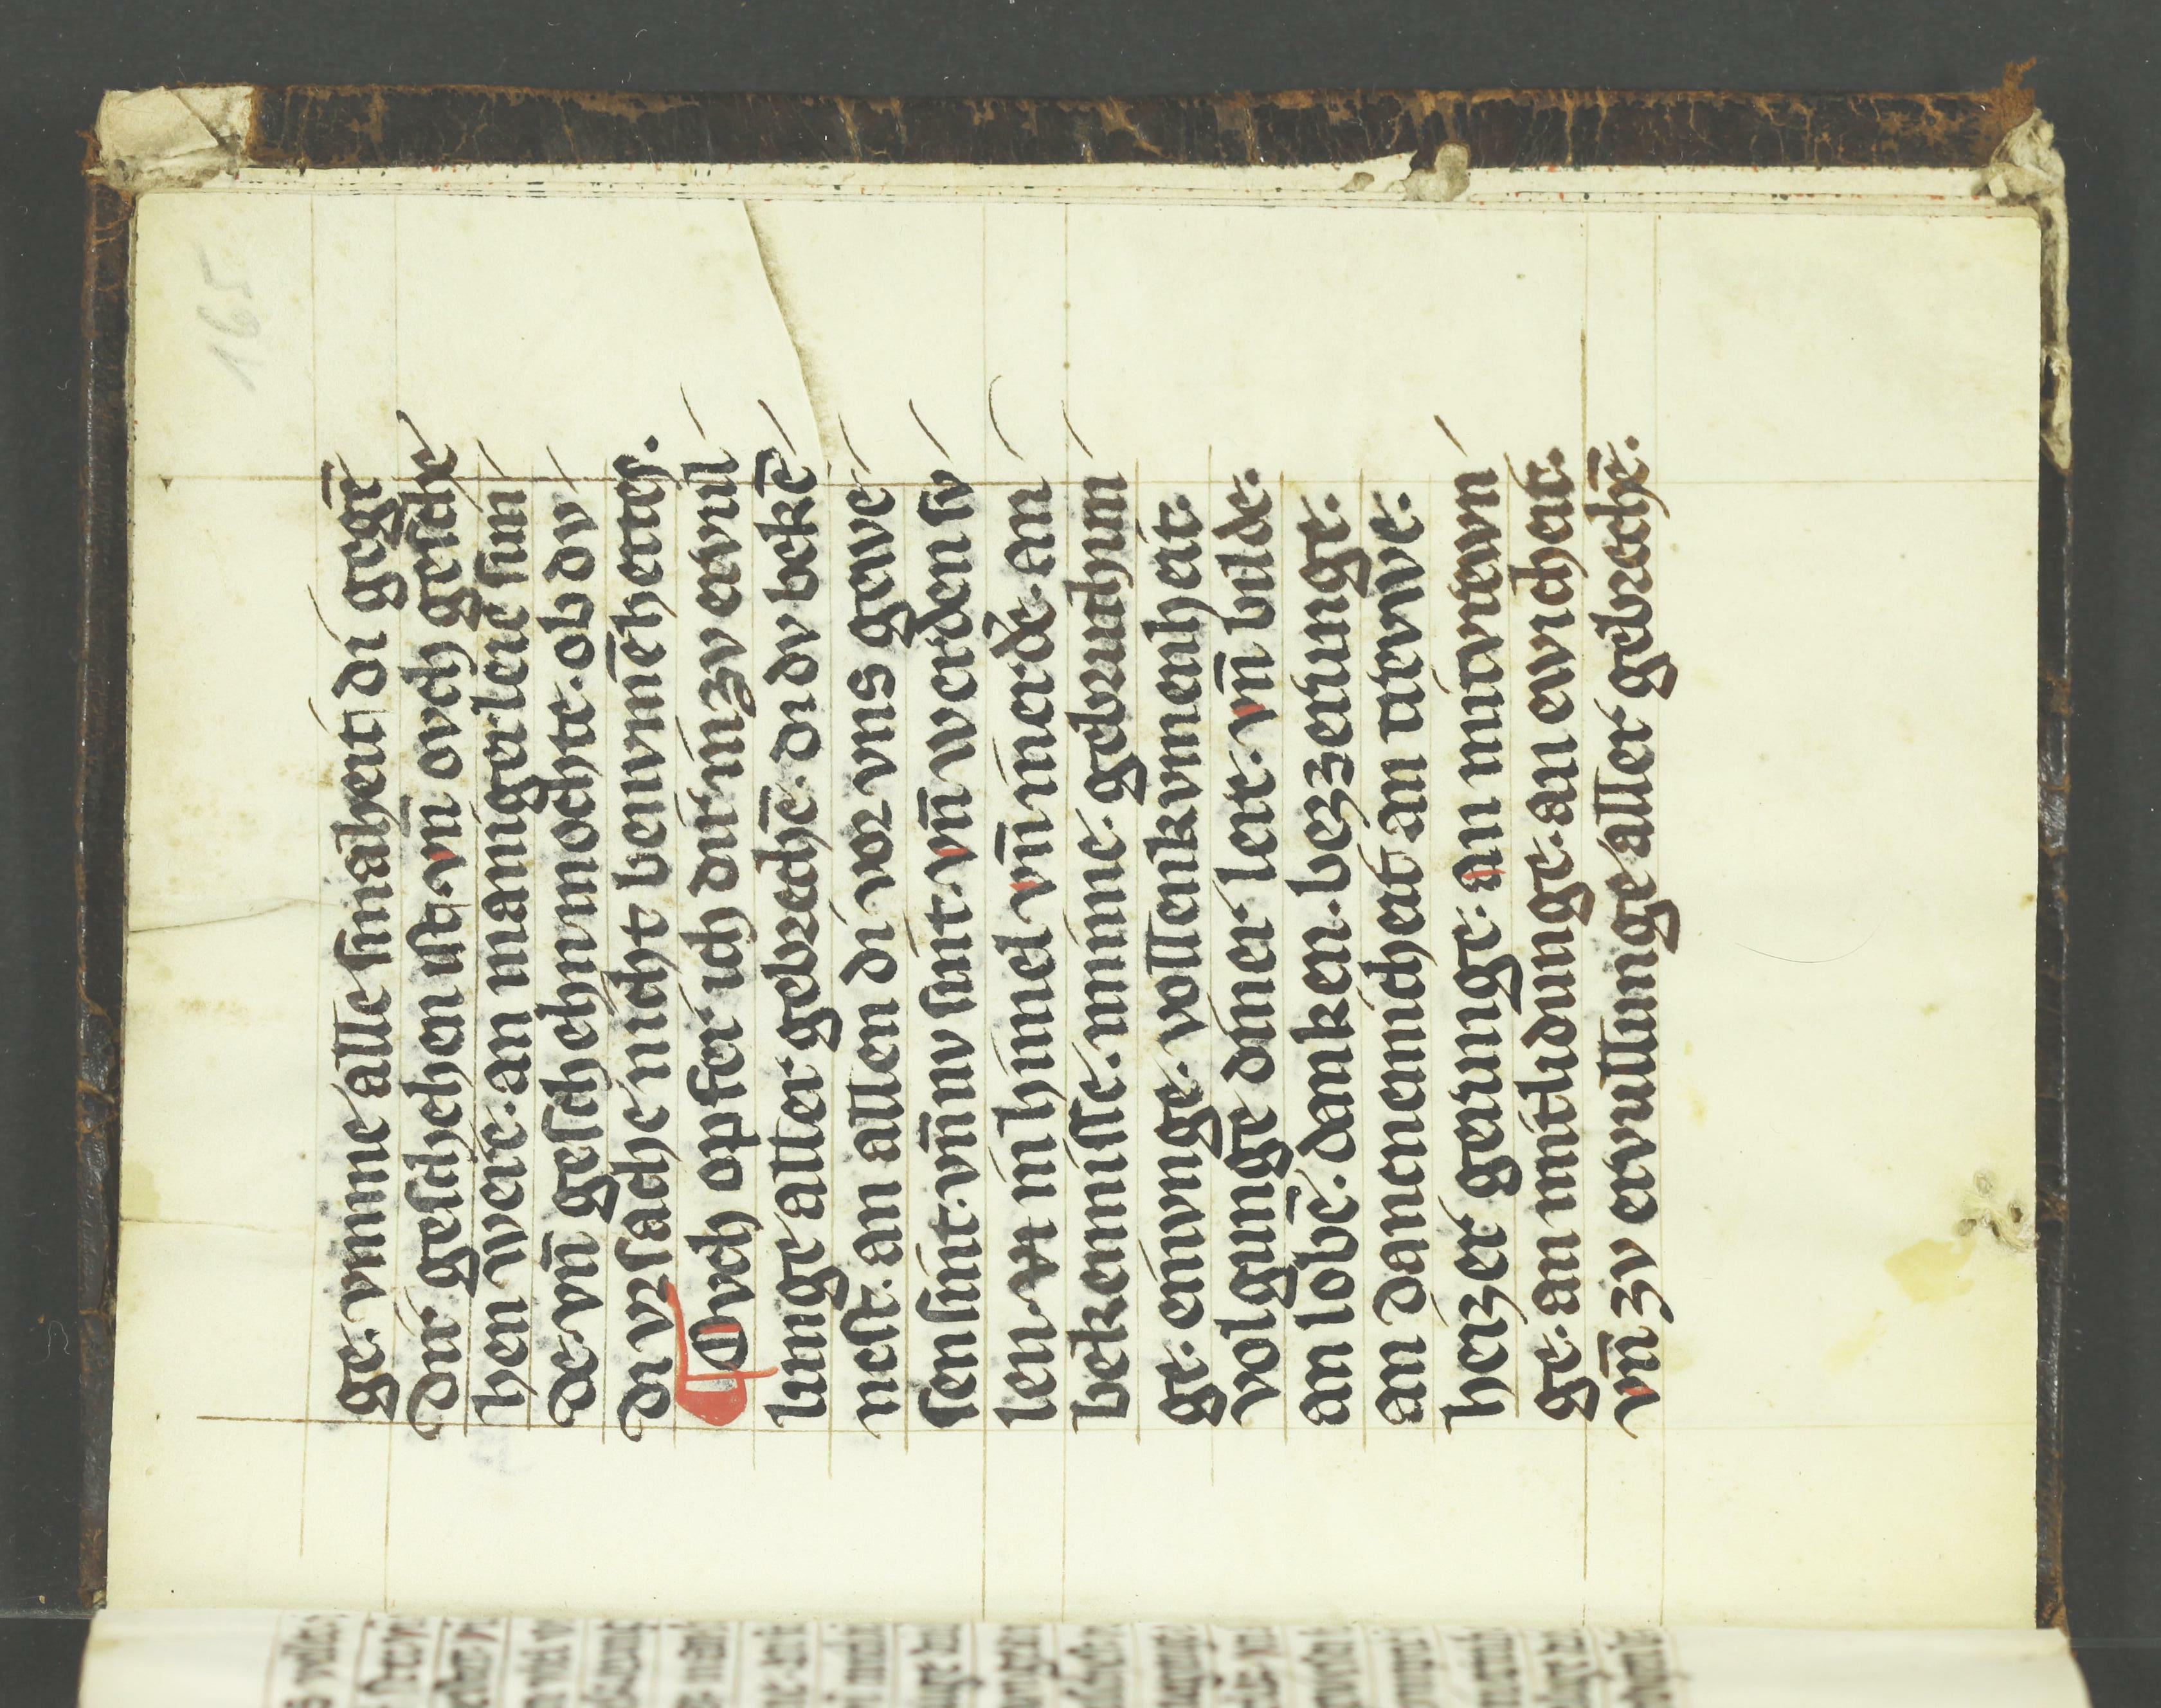 165
ge. vmme alle smaheit di gegē
dir geschehen ist. vn̄ ovch gesche
hen were. an manigerleie sun
de. vn̄ geschehn mochte. ob dv
di vrsache nicht benvmē hettes.
Ovch opfer ich dir in zv ervul
lunge aller gebrechē. di dv bekē
nest. an allen di vor vns gewe
sen sint. vn̄ nv sint. vn̄ werden sv
len. in himel vn̄ in erdē. an
bekennisse. minne. gebruchun
ge. einvnge. vollenkvmenheit.
volgunge diner lere. vn̄ bilde.
an lobē. danken. bezzerunge.
an danenemicheit an trewe.
herzer gerunge. an mitvrewn
ge. an mitlidunge. an ewicheit.
vn̄ zv ervullunge aller gebrechē.